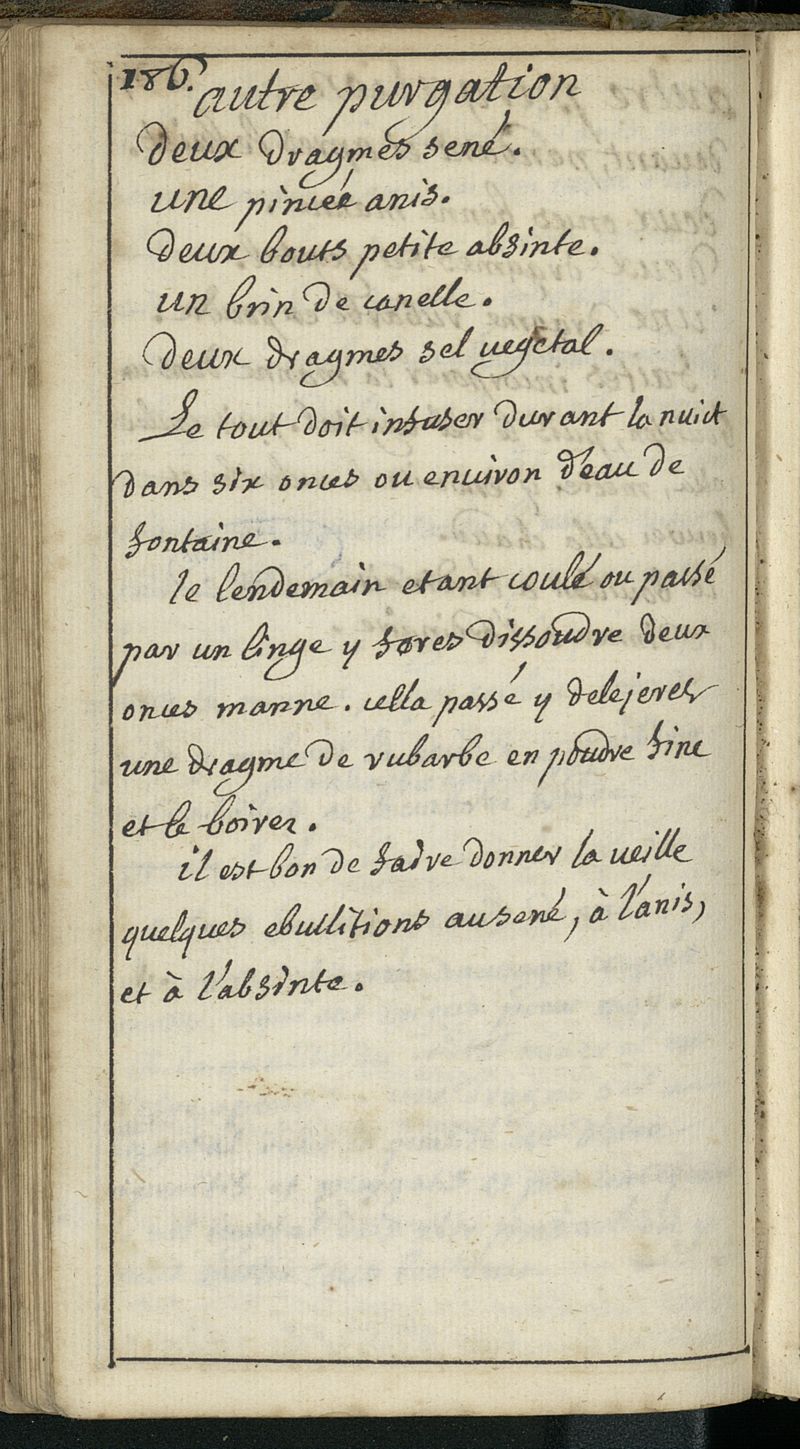 186.
autre purgation
deux dragmes sené.
une pincée anis.
deux bouts petite absinte.
un brin de canelle.
deux dragmes sel vegetal.
Le tout doit infuser durant la nuict
dans six onces ou environ d'eau de
fontaine.
le lendemain etant coulé ou passé
par un linge y fares dissoudre deux
onces manne. cella passé y delejeres
une dragme de rubarbe en poudre fine
et le boirez.
il est bon de faire donner la veille
quelques ebullitions au sené, à l'anis,
et à l'absinte.